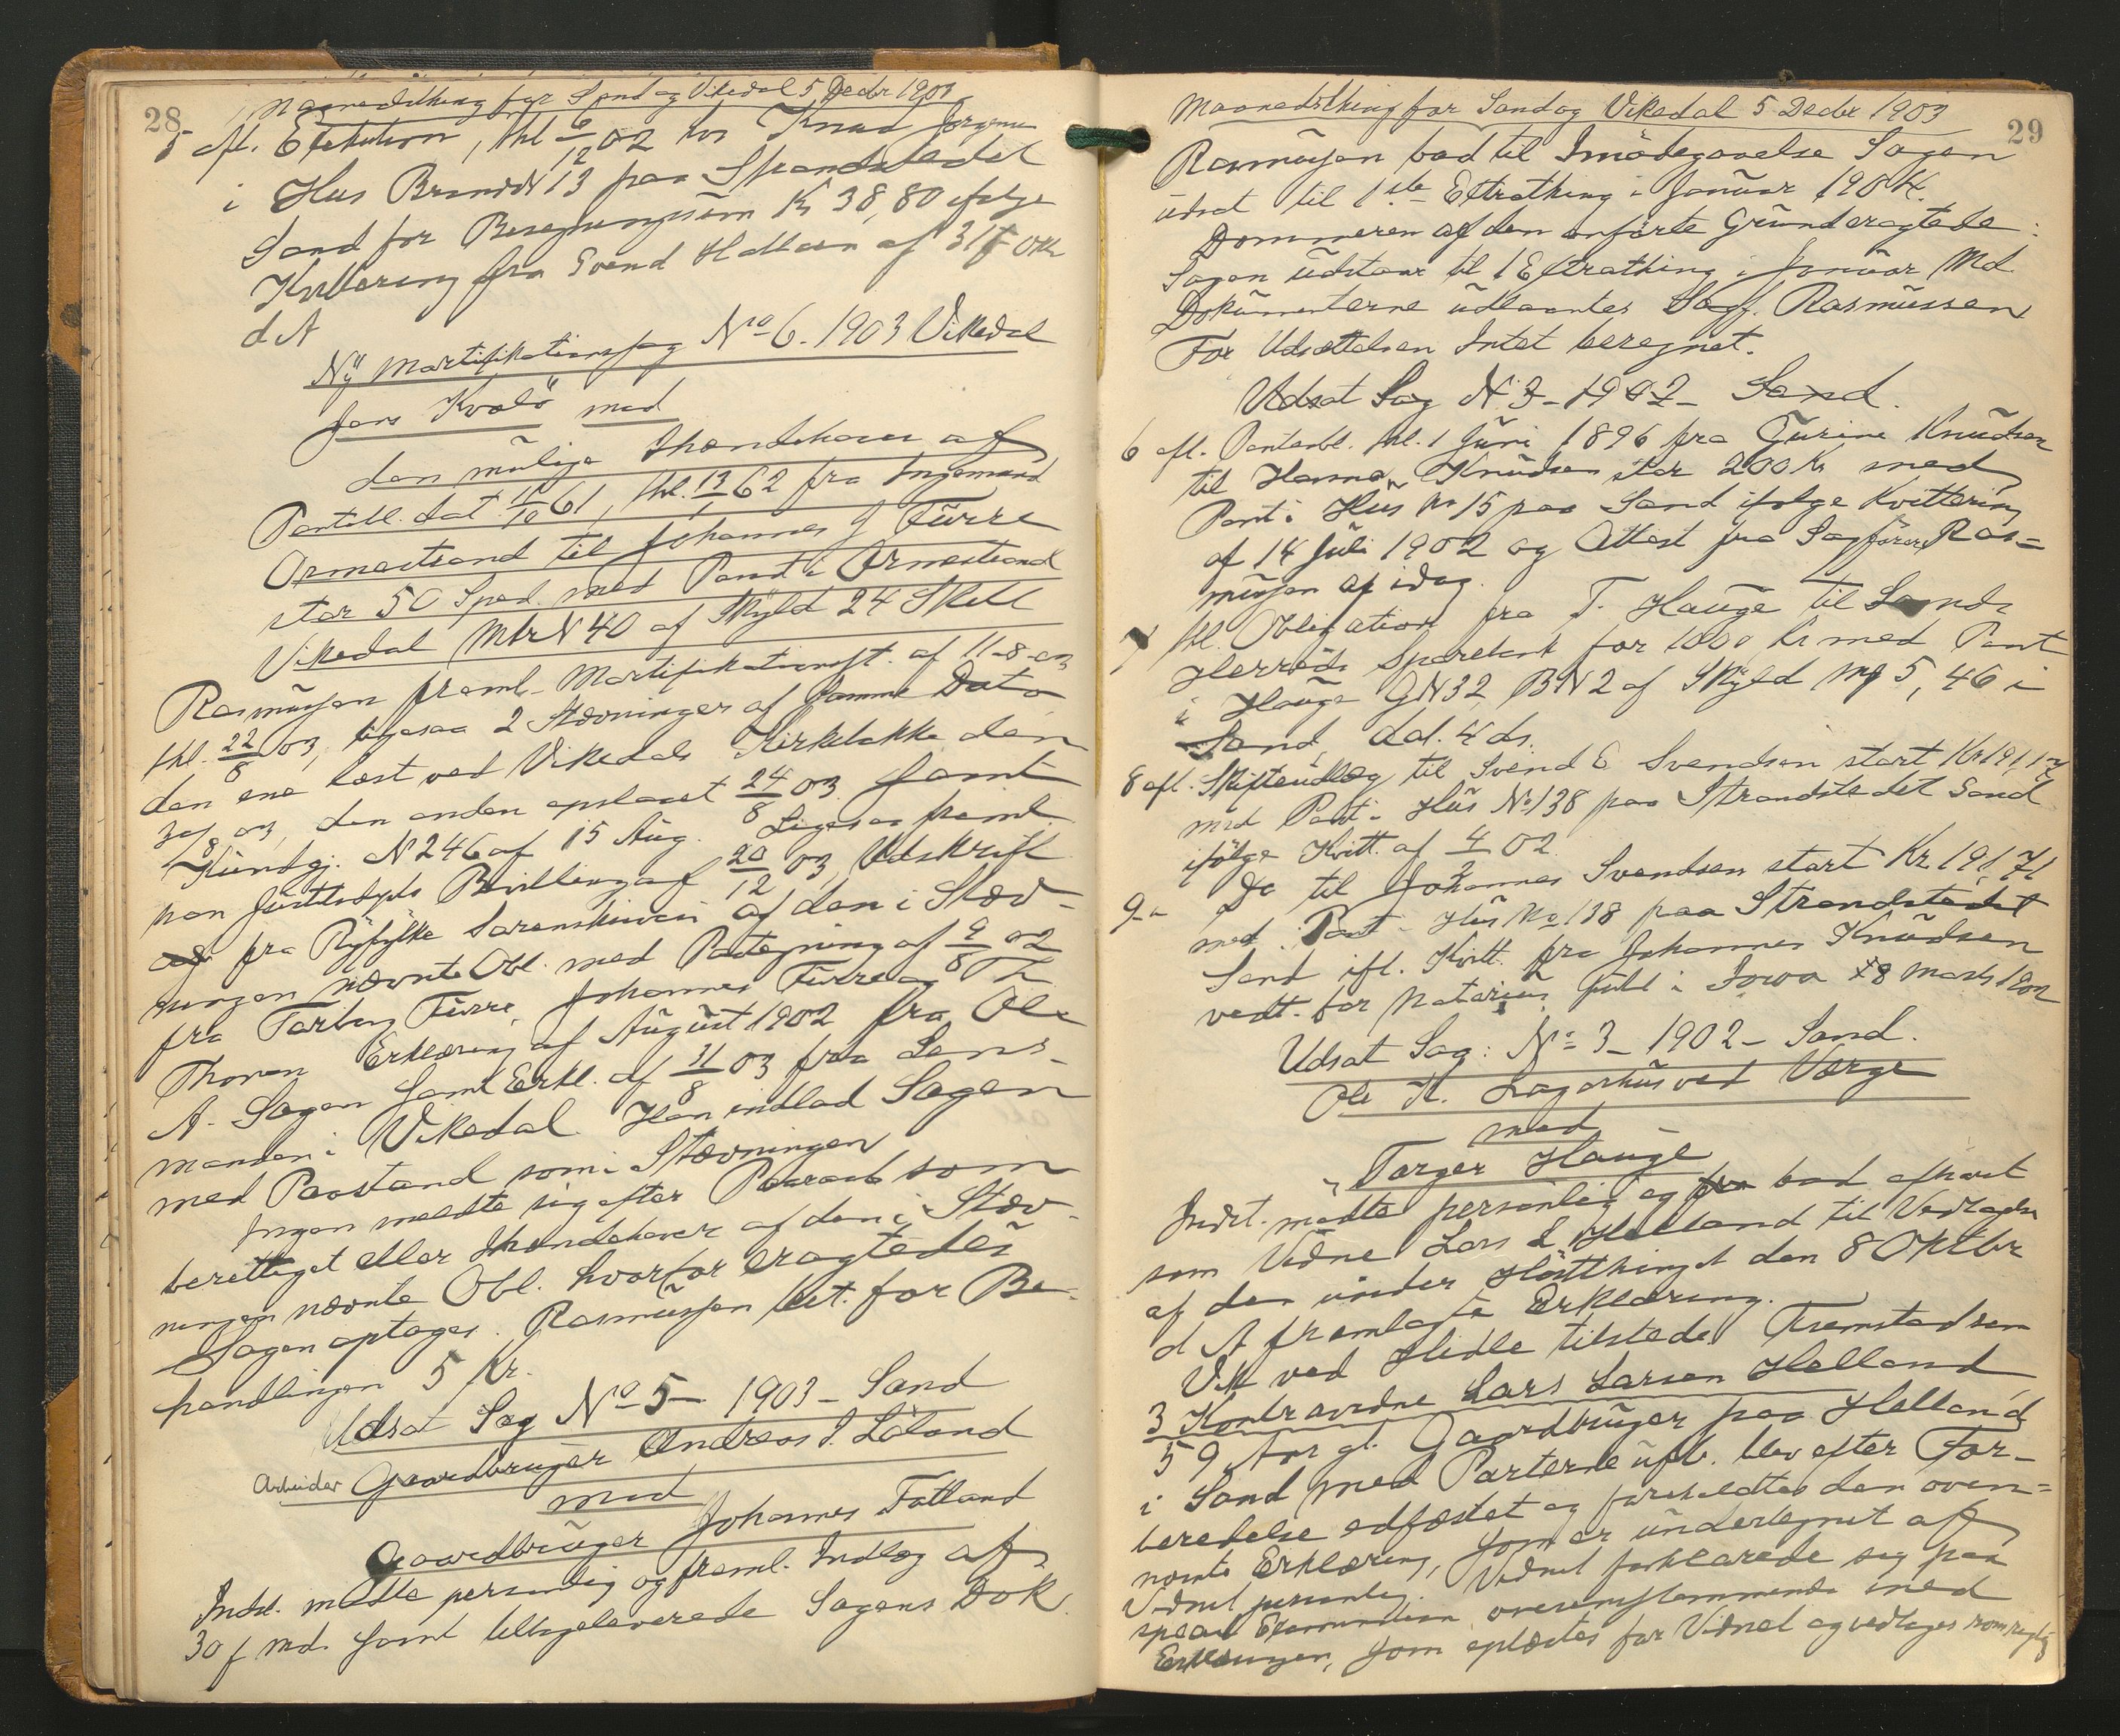 28
Maanedsthing for Sand og Vikedal 5 Decbr 1903
5 afl. Exekution, thl 6/12 02 hos Knud Jørgensen
i Hus Brandt N 13 paa Strandstedet
Sand for Besegningssum Kr 38,80 ifølge
Kvittering fra Svend Helland af 31 Okt
d A
Ny Mortifikationssag No 6. 1903 Vikedal
Jens Kvalø med
den mulige Ihændehaver af
Pantobl. dat 11/10 61, thl. 13/1 62 fra Ingemund
Ormestrand til Johannes J Fürre
stor 50 Sped. med Pant i Ormestrand
Vikedal Mtr N 40 af Skyld 24 Skill
Rasmussen freml. Mortifikationsst. af 11-8-03
thl. 22/8 03, ligesaa 2 Stævninger af samme Dato
den ene læst ved Vikedals Kirkebakke den
30/8 03, den anden opslaaet 24/8 03 samt
Kundgj. N 246 af 15 Aug. Ligesaa freml.
han Justitsdpts Bevilling af 20/12 03, Udskrift
fra Ryfylke Sorenskriveri af den i Stæv-
ningen nævnte Obl. med Paategning af 9/8 02
fra Torbeng Fürre, Johannes Fürre og Th
Thoren Erklæring af August 1902 fra Ole
A. Sagen samt Erkl. af 31/8 03 fra Lens-
manden i Vikedal. Han indlod Sagen
med Paastand som i Stævningen
Ingen meldte sig efter Paaraab som
berettiget eller Ihændehaver af den i Stæv-
ningen nævnte Obl. hvorfor eragtedes
Sagen optages. Rasmussen bet. for Be-
handlingen 5 Kr.
Udsat Sag No 5 - 1903 - Sand
Arbeider Gaardbruger Andreas I. Løland
med
Gaardbruger Johannes Fatland
Indst. mødte personlig og freml. Indlæg af
30 f Md. samt tilbageleverede Sagens Dok.
29
Maanedsthing for Sand og Vikedal 5 Decbr 1903
Rasmussen bad til Imødegaaelse Sagen
udsat til 1ste Extrathing i Januar 1904.
Dommeren af den anførte Grund eragtede:
Sagen udstaar til 1 Extrathing i Januar Md.
Dokumenterne udlaantes Sagf. Rasmussen
For Udsættelsen Intet beregnet.
Udsat Sag N 3 - 1902 - Sand.
6 afl. Panteobl. thl. 1 Juni 1896 fra Gurine Knudsen
til Hanna Knudsen stor 200 Kr med
Pant i Hus No 15 paa Sand ifølge Kvittering
af 14 Juli 1902 og Attest fra Sagfører Ras=
mussen af idag.
7 thl. Obligation fra T. Hauge til Sands
Herreds Sparebank for 1000 Kr med Pant
i Hauge GN 32, BN 2 af Skyld Mk 5, 46 i
Sand, dd. 4 ds.
8 afl. Skifteudlæg til Svend E Svendsen stort Kr 191,
med Pant i Hus No 138 paa Strandstedet Sand
ifølge Kvitt. af 4/3 02
9 - Do til Johannes Svendsen stort Kr. 191,71
med Pant i Hus No 138 paa Strandstedet
Sand ifl. Kvitt. fra Johannes Knudsen
vedt. for Notarius publ i Iowa 18 Marts 1902
Udsat Sag: No 3 - 1902 - Sand.
Ole K. Lagarhus ved Værge
med
Torger Hauge
Indst. mødte personlig og bad afhørt
som Vidne Lars L Helland til Vedtagelse
af den under Høstthinget den 8 Oktbr
d A fremlagte Erklæring.
Vik ved Hidle tilstede. Fremstod som
3 Kontravidne Lars Larsen Helland
59 Aar gl. Gaardbruger paa Helland
i Sand med Parterne ubs. blev efter For-
beredelse edfæstet og foreholdtes den oven=
nævnte Erklæring, som er undertegnet af
Vidnet personlig. Vidnet forklarede sig paa
speciel Examination overensstemmende med
Erklæringen, som oplæstes for Vidnet og vedtoges som rigtig